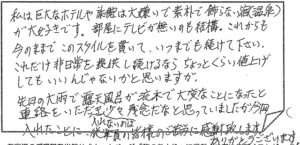 私は巨大なホテルや旅館は大嫌いで素朴で飾らない宿(温泉)
が大好きです。部屋にテレビが無いのも結構。これからも
今のままでこのスタイルを貫いて、いつまでも続けて下さい。
これだけ非日常を提供し続けるなら なっとくらい値上げ
してもいいんじゃないかと思いますが。
先日の大雨で露天風呂が流木で大変なことになったと
電話をいただき 残念だなと思っていましたが今回
入れないのは
入れたことに 従業員の皆様のご努力に感謝致します
ありがとうございます